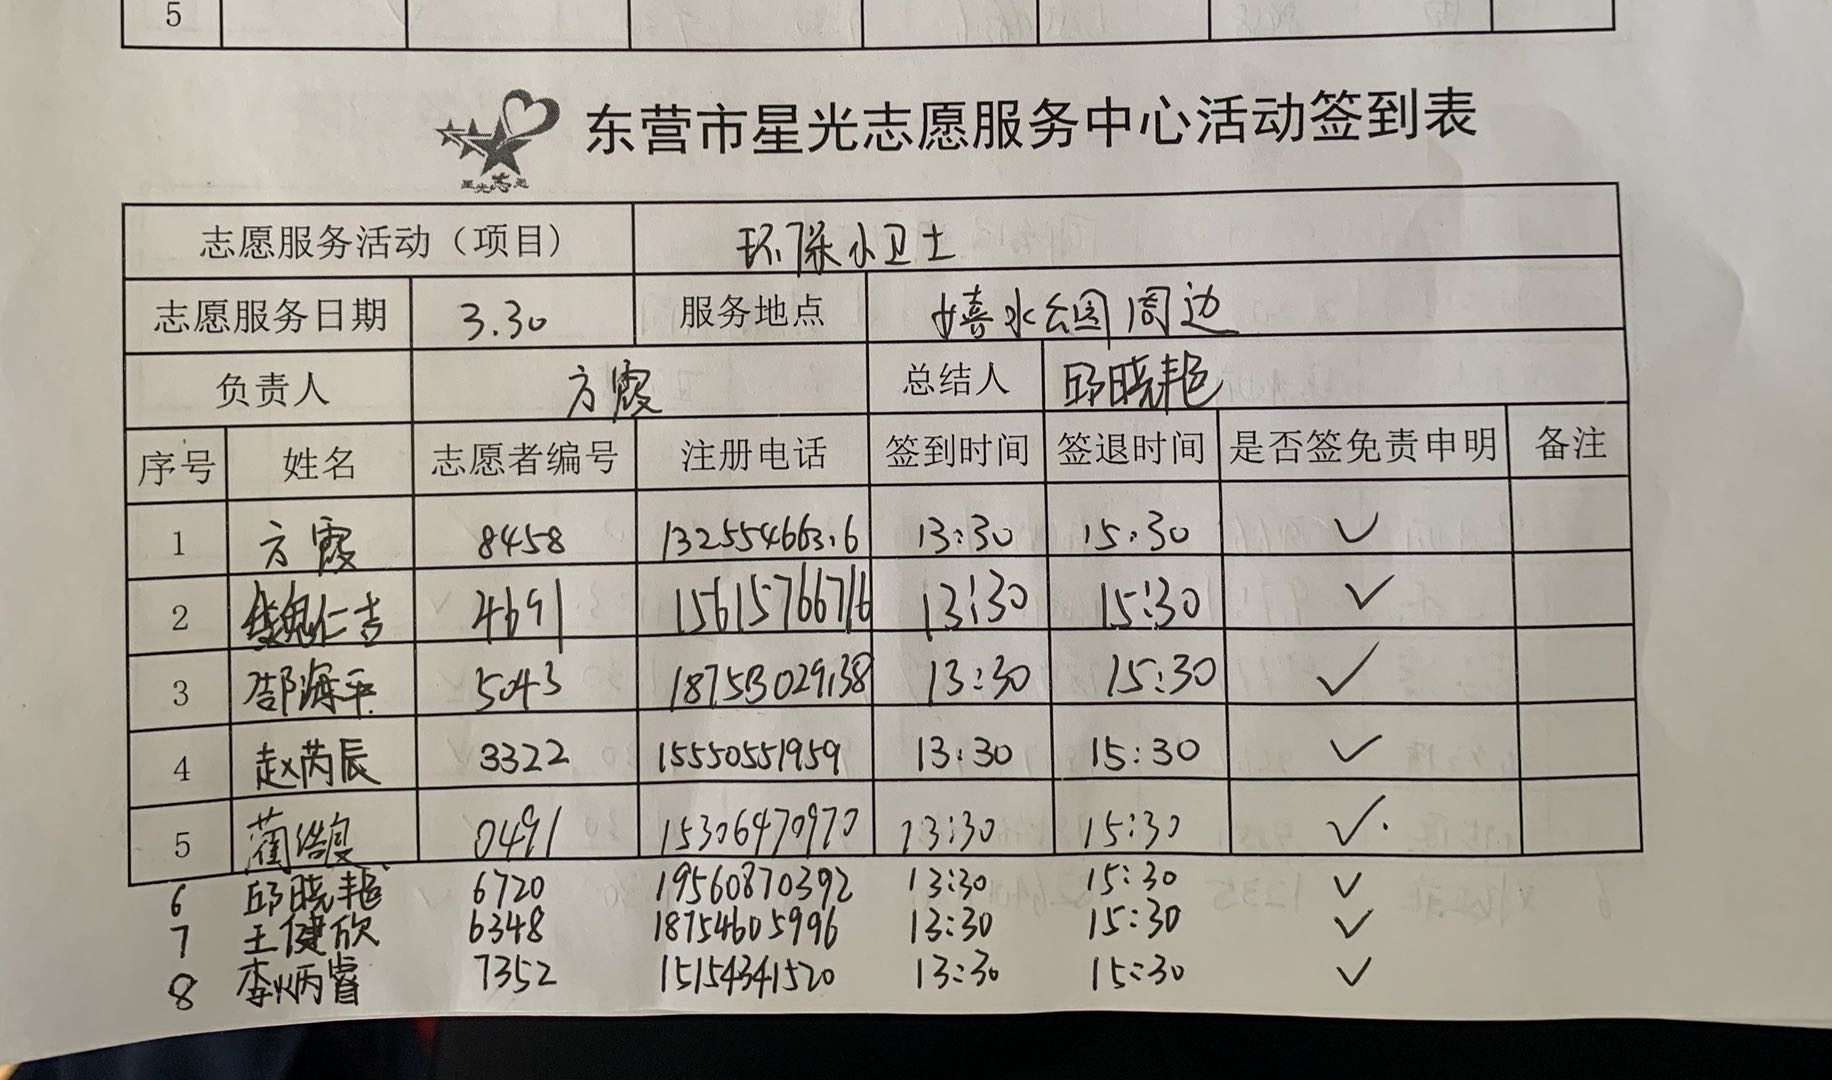 5
东营市星光志愿服务中心活动签到表
星光志愿
志愿服务活动（项目） 环保小卫士
志愿服务日期 3.30 服务地点 嬉水公园周边
负责人 方霞 总结人 邱晓艳
序号 姓名 志愿者编号 注册电话 签到时间 签退时间 是否签免责申明 备注
1 方霞 8458 13:30 15:30 ✓
2 魏仁吉 4691 15615766716 13:30 15:30 ✓
3 郜海平 5043 18753029138 13:30 15:30 ✓
4 赵芮辰 3322 15550551959 13:30 15:30 ✓
5 0491 15306470970 13:30 15:30 ✓
6 邱晓艳 6720 19560870392 13:30 15:30 ✓
7 王健欣 6348 18754605996 13:30 15:30 ✓
8 李炳睿 7352 15154341520 13:30 15:30 ✓